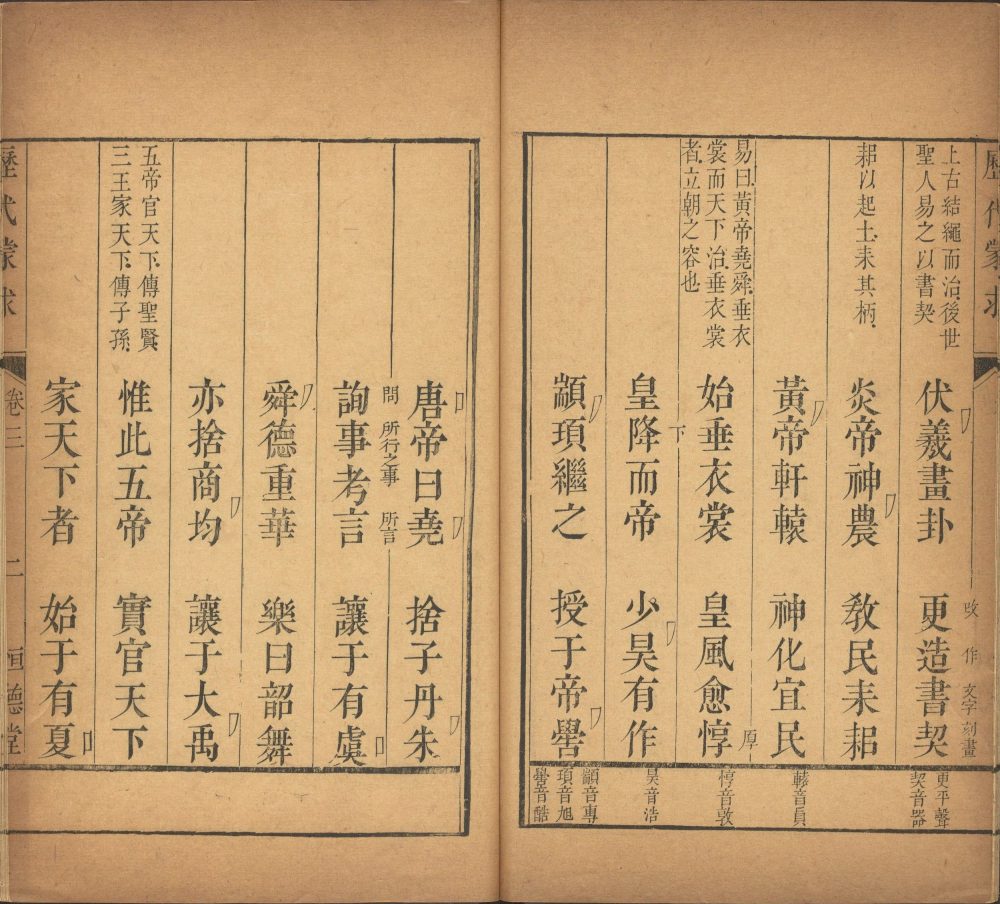 歷代蒙求
上古結繩而治後世
聖人易之以書契
伏羲畫卦 更造書契
改 作 文字刻畫
更平聲
契音器
耜以起土耒其柄
炎帝神農 教民耒耜
黃帝軒轅 神化宜民
轅音員
易曰黃帝堯舜垂衣
裳而天下治垂衣裳
者立朝之容也
始垂衣裳 皇風愈惇
厚
惇音敦
下
皇降而帝 少昊有作
昊音浩
顓頊繼之 授于帝嚳
顓音專
頊音旭
嚳音酷
唐帝曰堯 捨子丹朱
問 所行之事 所言
詢事考言 讓于有虞
舜德重華 樂曰韶舞
亦捨商均 讓于大禹
五帝官天下傳聖賢
三王家天下傳子孫
惟此五帝 實官天下
家天下者 始于有夏
歷代蒙求 卷三 二 恒德堂